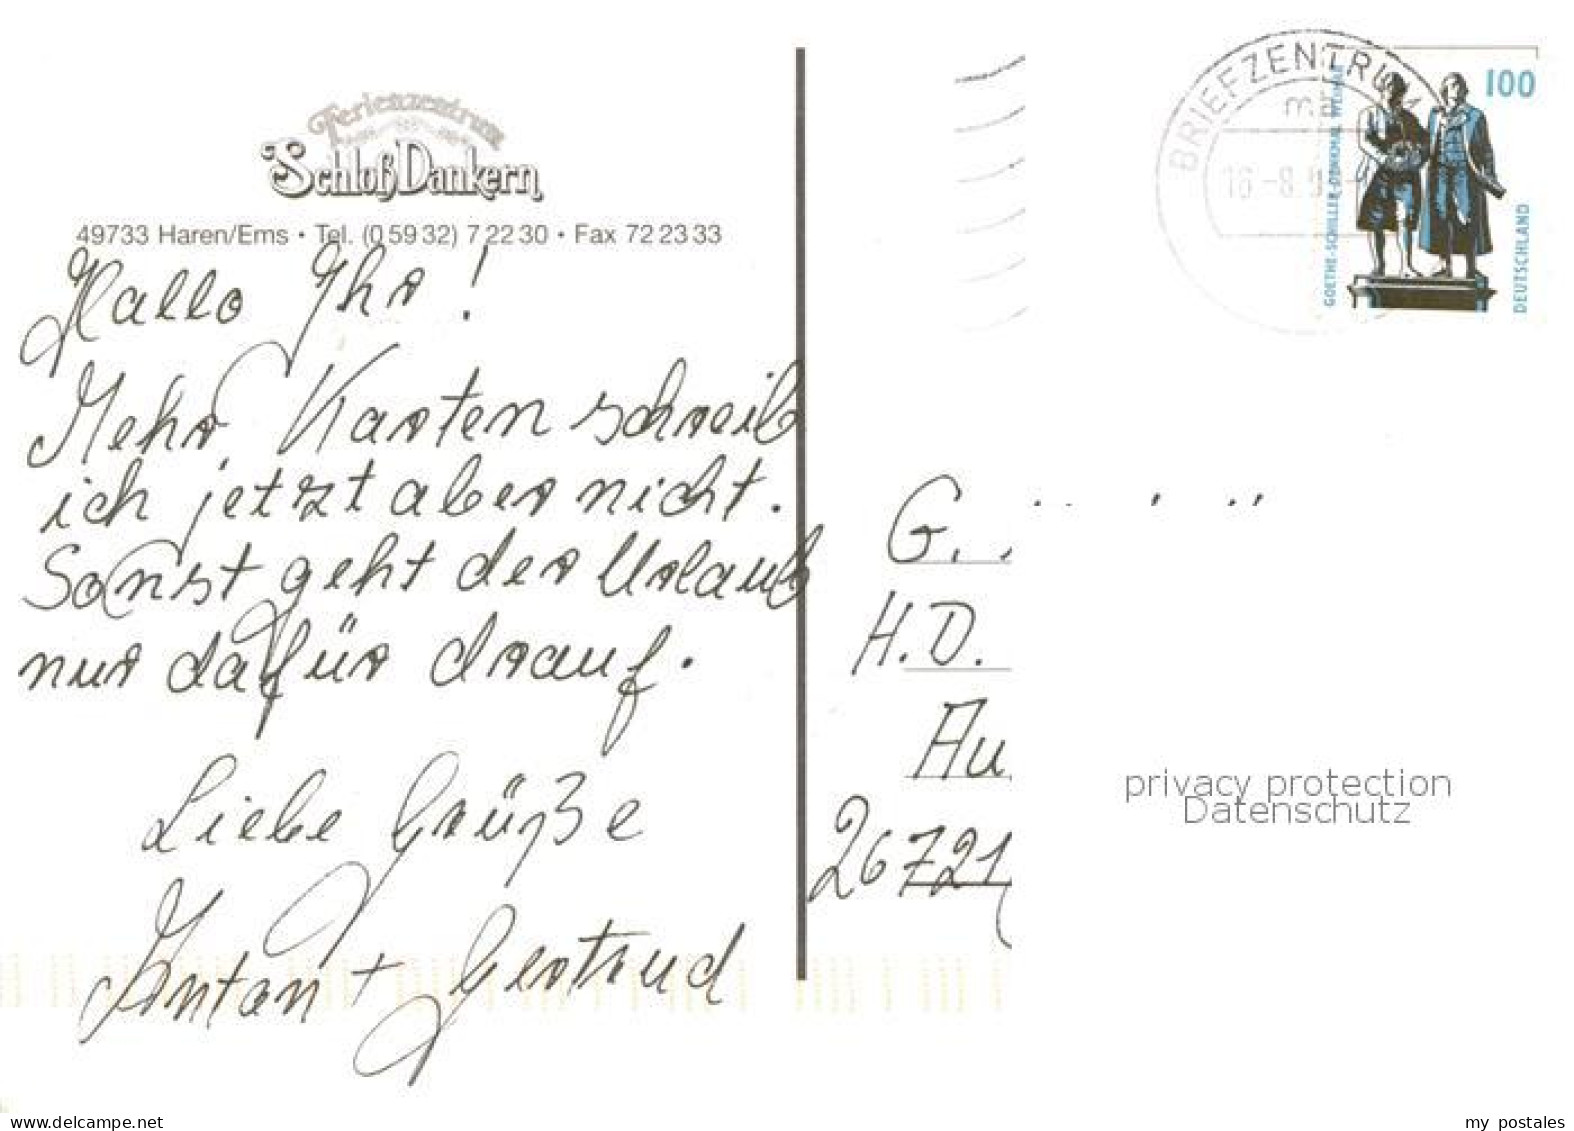 Ferienzentrum
Schloß Dankern
49733 Haren/Ems • Tel. (0 59 32) 7 22 30 • Fax 72 23 33
Hallo Ihr!
Mehr Karten schreib
ich jetzt aber nicht.
Sonst geht der Urlaub
nur dafür drauf.
Liebe Grüße
Anton + Gertrud
BRIEFZENTRUM
100
GOETHE-SCHILLER-DENKMAL WEIMAR
DEUTSCHLAND
G.
H.D.
Au
26721
privacy protection
Datenschutz
www.delcampe.net
my postales